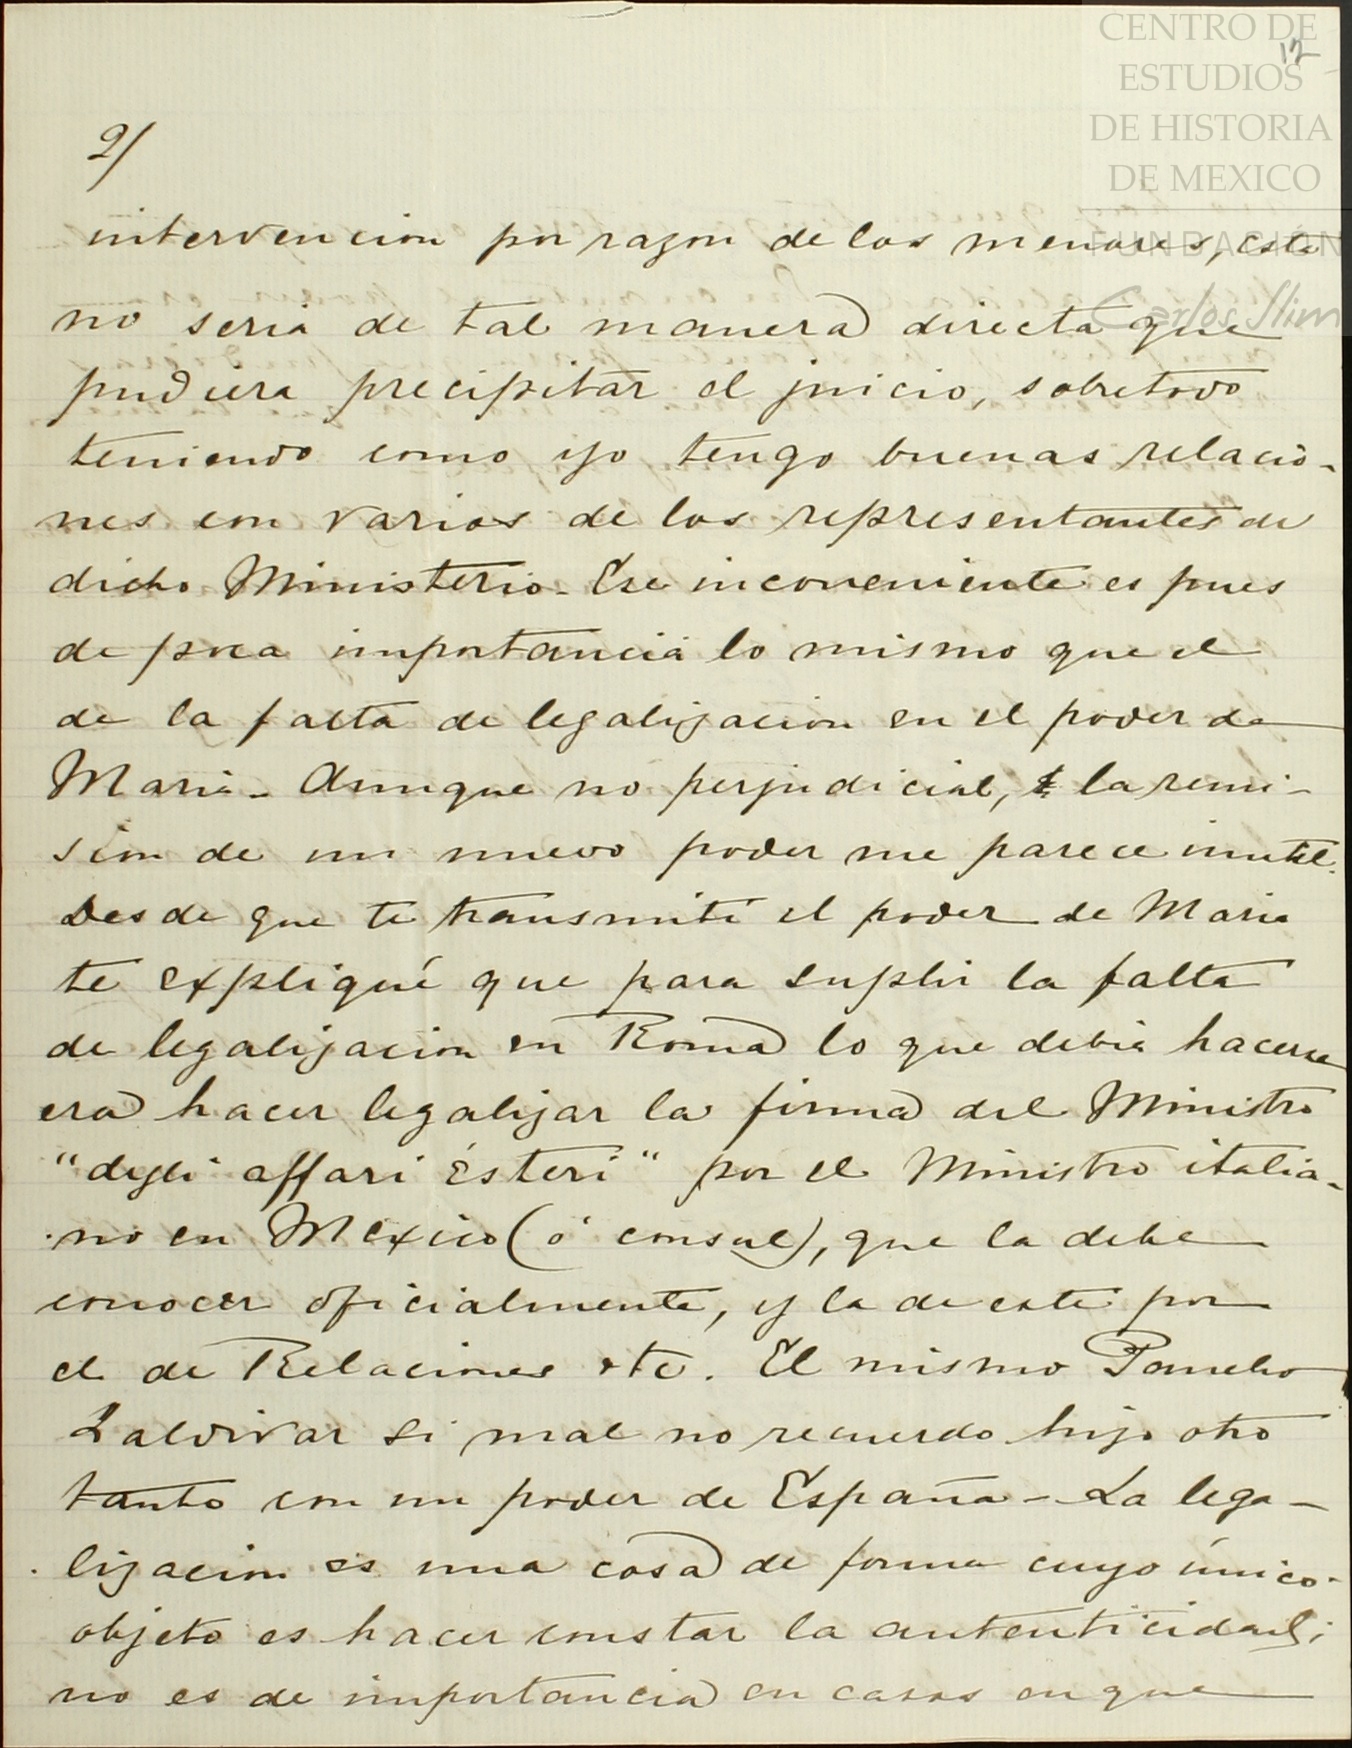 CENTRO DE
ESTUDIOS
DE HISTORIA
DE MEXICO
FUNDACIÓN
Carlos Slim
12
2/
intervencion por razon de los menores, esta
no seria de tal manera directa que
pudiera precipitar el juicio, sobretodo
teniendo como yo tengo buenas relacio-
nes con varios de los representantes de
dicho Ministerio. Ese inconveniente es pues
de poca importancia lo mismo que el
de la falta de legalizacion en el poder de
Maria. Aunque no perjudicial, la remi-
sion de un nuevo poder me parece inutil.
Desde que te transmití el poder de Maria
te expliqué que para suplir la falta
de legalizacion en Roma lo que debia hacerse
era hacer legalizar la firma del Ministro
"degli affari Esteri" por el Ministro italia-
no en Mexico (ó consul), que la debe
conocer oficialmente, y la de este por
el de Relaciones etc. El mismo Pancho
Zaldivar si mal no recuerdo hizo otro
tanto con un poder de España - La lega-
lizacion es una cosa de forma cuyo único
objeto es hacer constar la autenticidad;
no es de importancia en casos en que